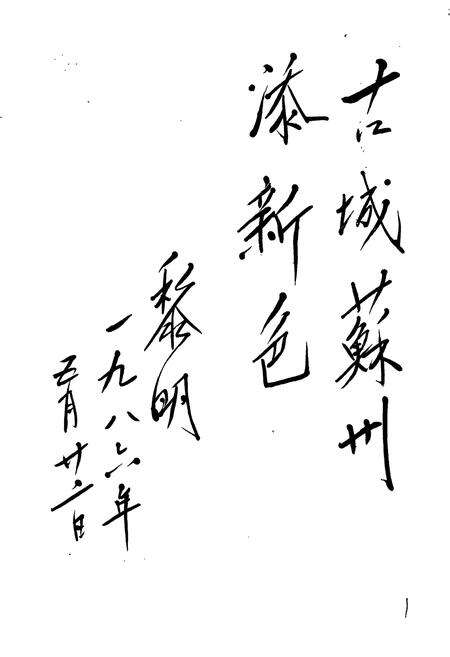 古城蘇州
添新色
黎明
一九八六年
五月廿二日